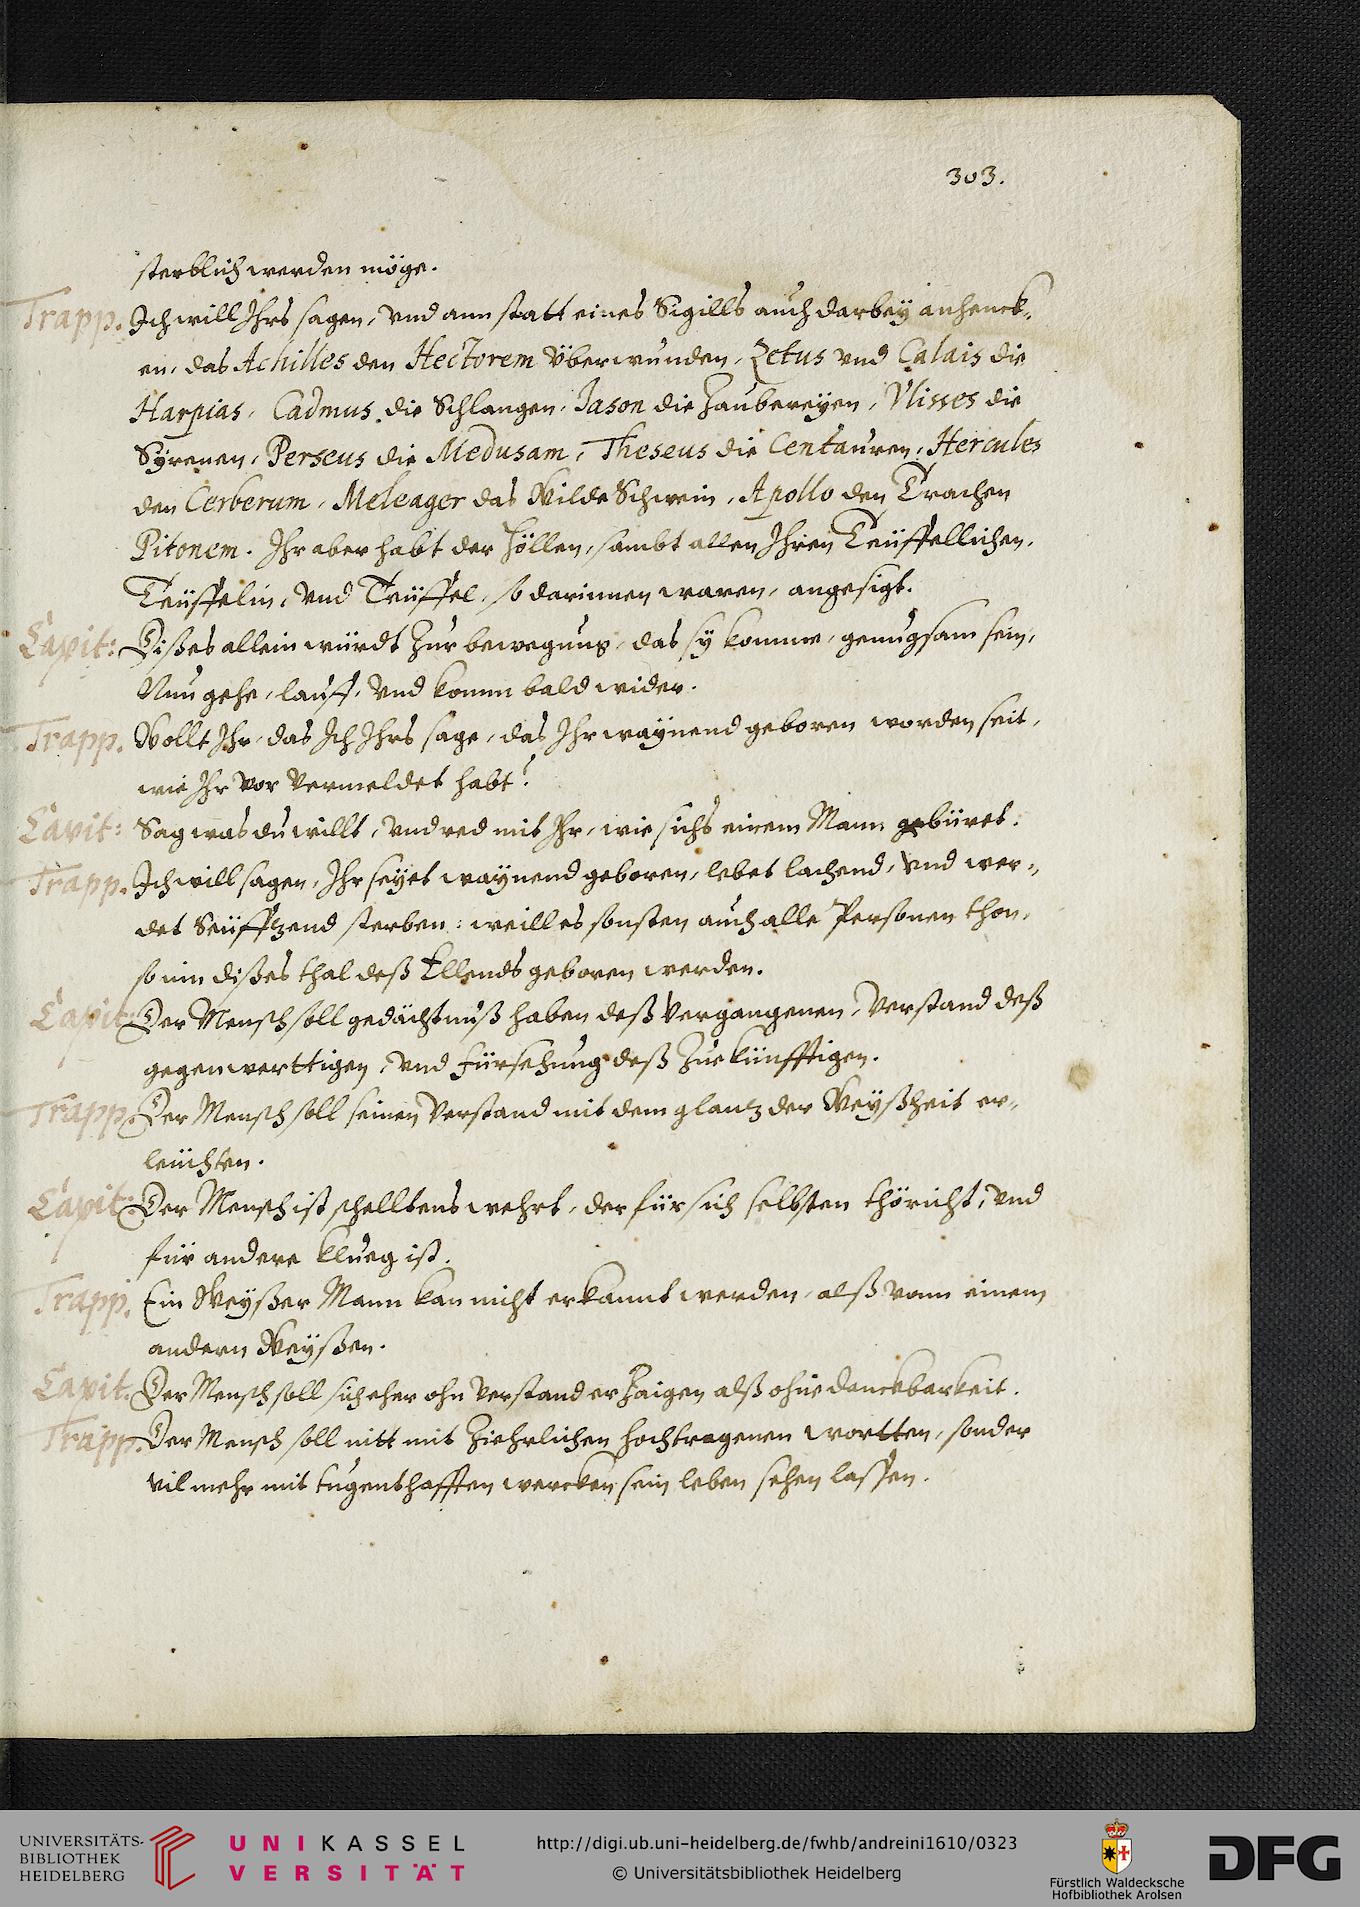 303.
sterblich werden möge.
Trapp. Ich will Ihrs sagen, vnd ann statt eines Sigills auch darbey anhenck-,
en, das Achilles den Hectorem überwunden, Zetus vnd Calais die
Harpias, Cadmus die Schlangen, Iason die Zaubereyen, Vlisses die
Syrenen, Perseus die Medusam, Theseus die Centauren, Hercules
den Cerberum, Meleager das Wilde Schwein, Apollo den Trachen
Pitonem. Ihr aber habt der Höllen, sambt allen Ihren Teüffellichen,
Teüffelin, vnd Teüffel, so darinnen waren, angesigt.
Capit: Dißes allein würdt Zur bewegung, das sy komme, genugsam sein,
Nun gehe, lauff, vnd komm bald wider.
Trapp. Wollt Ihr, das Ich Ihrs sage, das Ihr waynend geboren worden seit,
wie Ihr vor vermeldet habt?
Capit: Sag was du willt, vnd red mit Ihr, wie sichs einem Mann gebüret.
Trapp. Ich will sagen, Ihr seyet waynend geboren, lebet lachend, vnd wer-,
det Seüfftzend sterben: weill es sonsten auch alle Personen thon,
so inn dißes thal deß Ellends geboren werden.
Capit: Der Mensch soll gedächtnuß haben deß Vergangenen, Verstand deß
gegenwerttigen, vnd fürsehung deß Zuekünfftigen.
Trapp. Der Mensch soll seinen Verstand mit dem glantz der Weyßheit er-,
leüchten.
Capit: Der Mensch ist schelltens wehrt, der für sich selbsten thöricht, vnd
für andere klueg ist.
Trapp. Ein Weyßer Mann kan nicht erkannt werden, alß vonn einem
andern Weyßen.
Capit. Der Mensch soll sich eher ohn Verstand erZaigen alß ohne danckbarkeit.
Trapp. Der Mensch soll nitt mit Ziehrlichen hochtragenen wortten, sonder
vil mehr mit tugenthafften wercken sein leben sehen lassen.
UNIVERSITÄTS-
BIBLIOTHEK
HEIDELBERG
UNIKASSEL
VERSITÄT
http://digi.ub.uni-heidelberg.de/fwhb/andreini1610/0323
© Universitätsbibliothek Heidelberg
Fürstlich Waldecksche
Hofbibliothek Arolsen
DFG